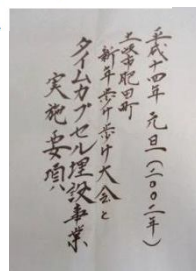 平成十四年 元旦(二〇〇二年)
土岐市肥田町
新年歩け歩け大会と
タイムカプセル埋設事業
実施要項